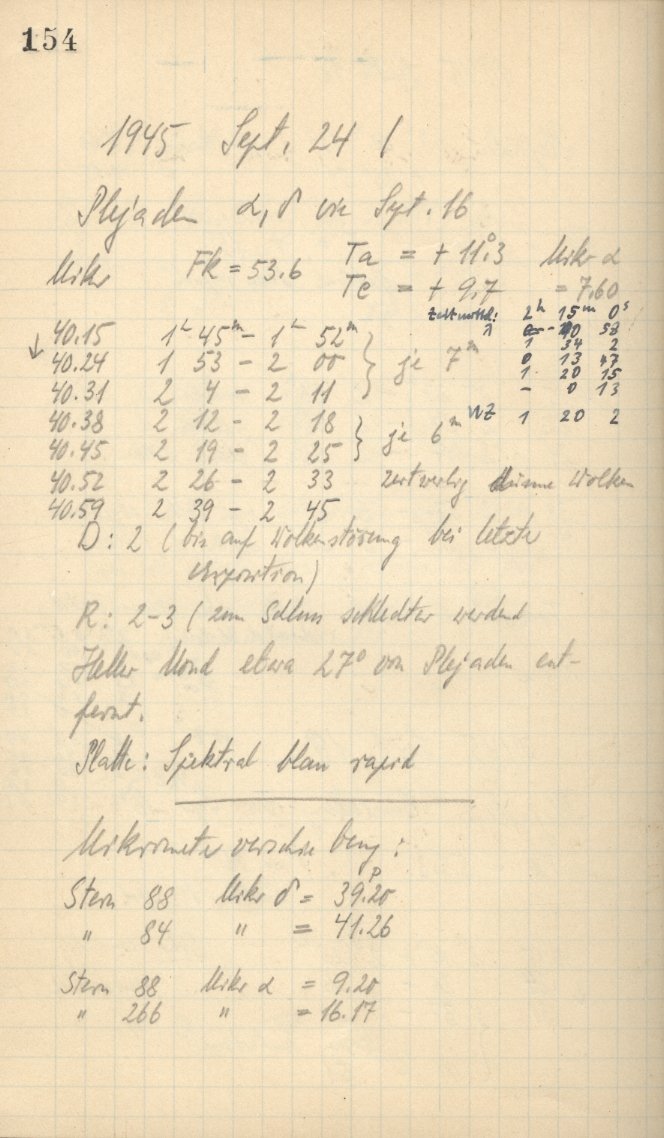 154
1945 Sept. 24 /
Plejaden α, δ wie Sept. 16
Mikr Fk = 53.6 Ta = + 11°.3 Mikr α
Te = + 9.7 = 7.60
2h 15m 0s
40.15 1h 45m - 1h 52m
λ 40 58
1 34 2
↓ 40.24 1 53 - 2 00 } je 7m
0 13 47
1 20 15
40.31 2 4 - 2 11
- 0 13
40.38 2 12 - 2 18
WZ 1 20 2
40.45 2 19 - 2 25 } je 6m
40.52 2 26 - 2 33 zeitweilig dünne Wolken
40.59 2 39 - 2 45
D: 2 (bis auf Wolkenstörung bei letzte
Exposition)
R: 2-3 (zum Schluss schlechter werdend
Heller Mond etwa 27° von Plejaden ent-
fernt.
Platte: Spektral blau rapid
Mikrometerverschiebung:
Stern 88 Mikr δ = 39.20
" 84 " = 41.26
Stern 88 Mikr α = 9.20
" 266 " = 16.17